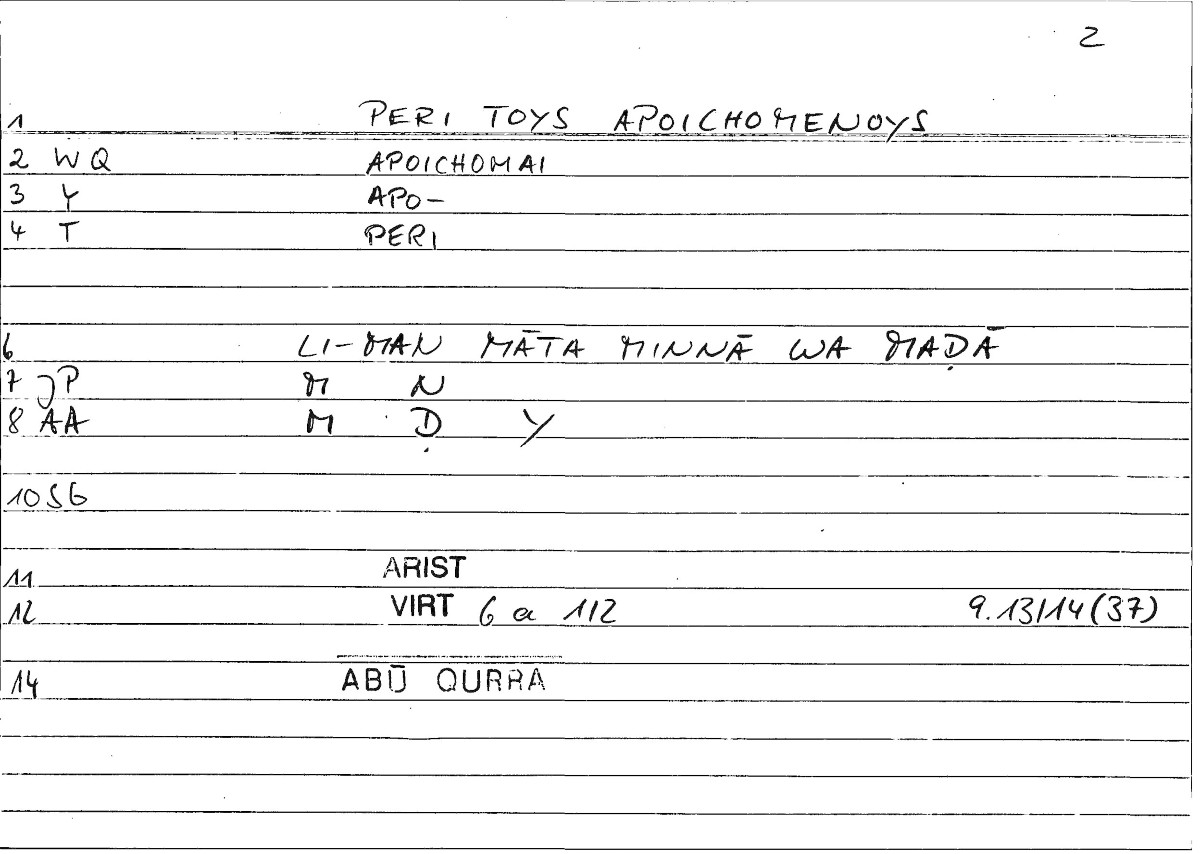 2
1 PERI TOYS APOICHOMENOYS
2 WQ APOICHOMAI
3 Y APO-
4 T PERI
6 LI-MAN MĀTA MINNĀ WA MAḌĀ
7 JP M N
8 AA M Ḍ Y
10 SG
11 ARIST
12 VIRT 6 a 1/2 9.13/14(37)
14 ABŪ QURRA